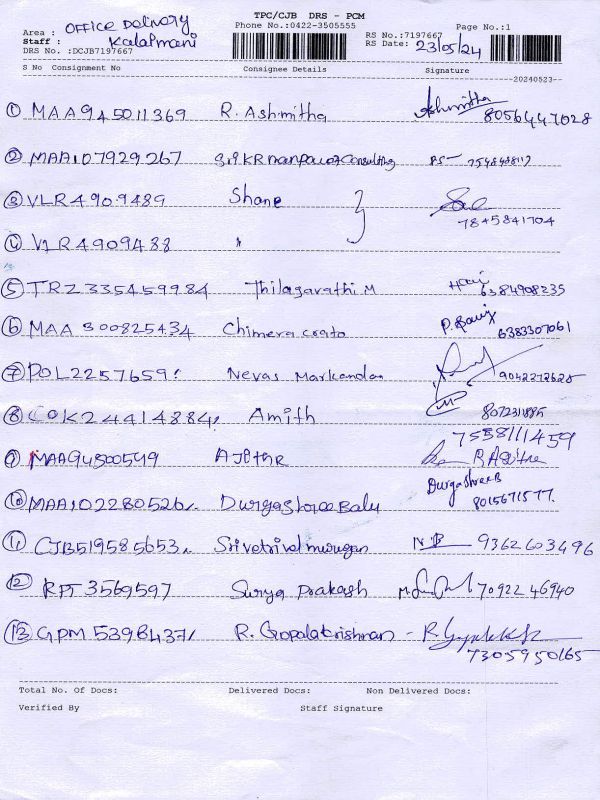 TPC/CJB DRS - PCM
Area : OFFICE Delivery
Phone No.:0422-3505555
RS No.:7197667
Page No.:1
Staff : Kalaimani
RS Date: 23/05/24
DRS No.:DCJB7197667
S No Consignment No Consignee Details Signature
--20240523--
① MAA945011369 R. Ashmitha Ashmitha 8056447028
② MAA107929267
③ VLR4909489 Shane 7845841704
④ VLR4909488 "
⑤ TRZ335459984 Thilagavathi M 6384908235
⑥ MAA300825434 Chimera 6383307061
⑦ POL2257659 Nevas Markandan
⑧ COK24414884 Amith
7558111459
⑨ Ajethr
⑩ MAA102280526 Durgashree Balu Durgashree B 8015671577
⑪ CJB519585653 Srivetrivelmurugan 9362603496
⑫ RPJ3569597 Surya Prakash 70922 46940
⑬ R. Gopalakrishnan - 7305950165
Total No. Of Docs: Delivered Docs: Non Delivered Docs:
Verified By Staff Signature